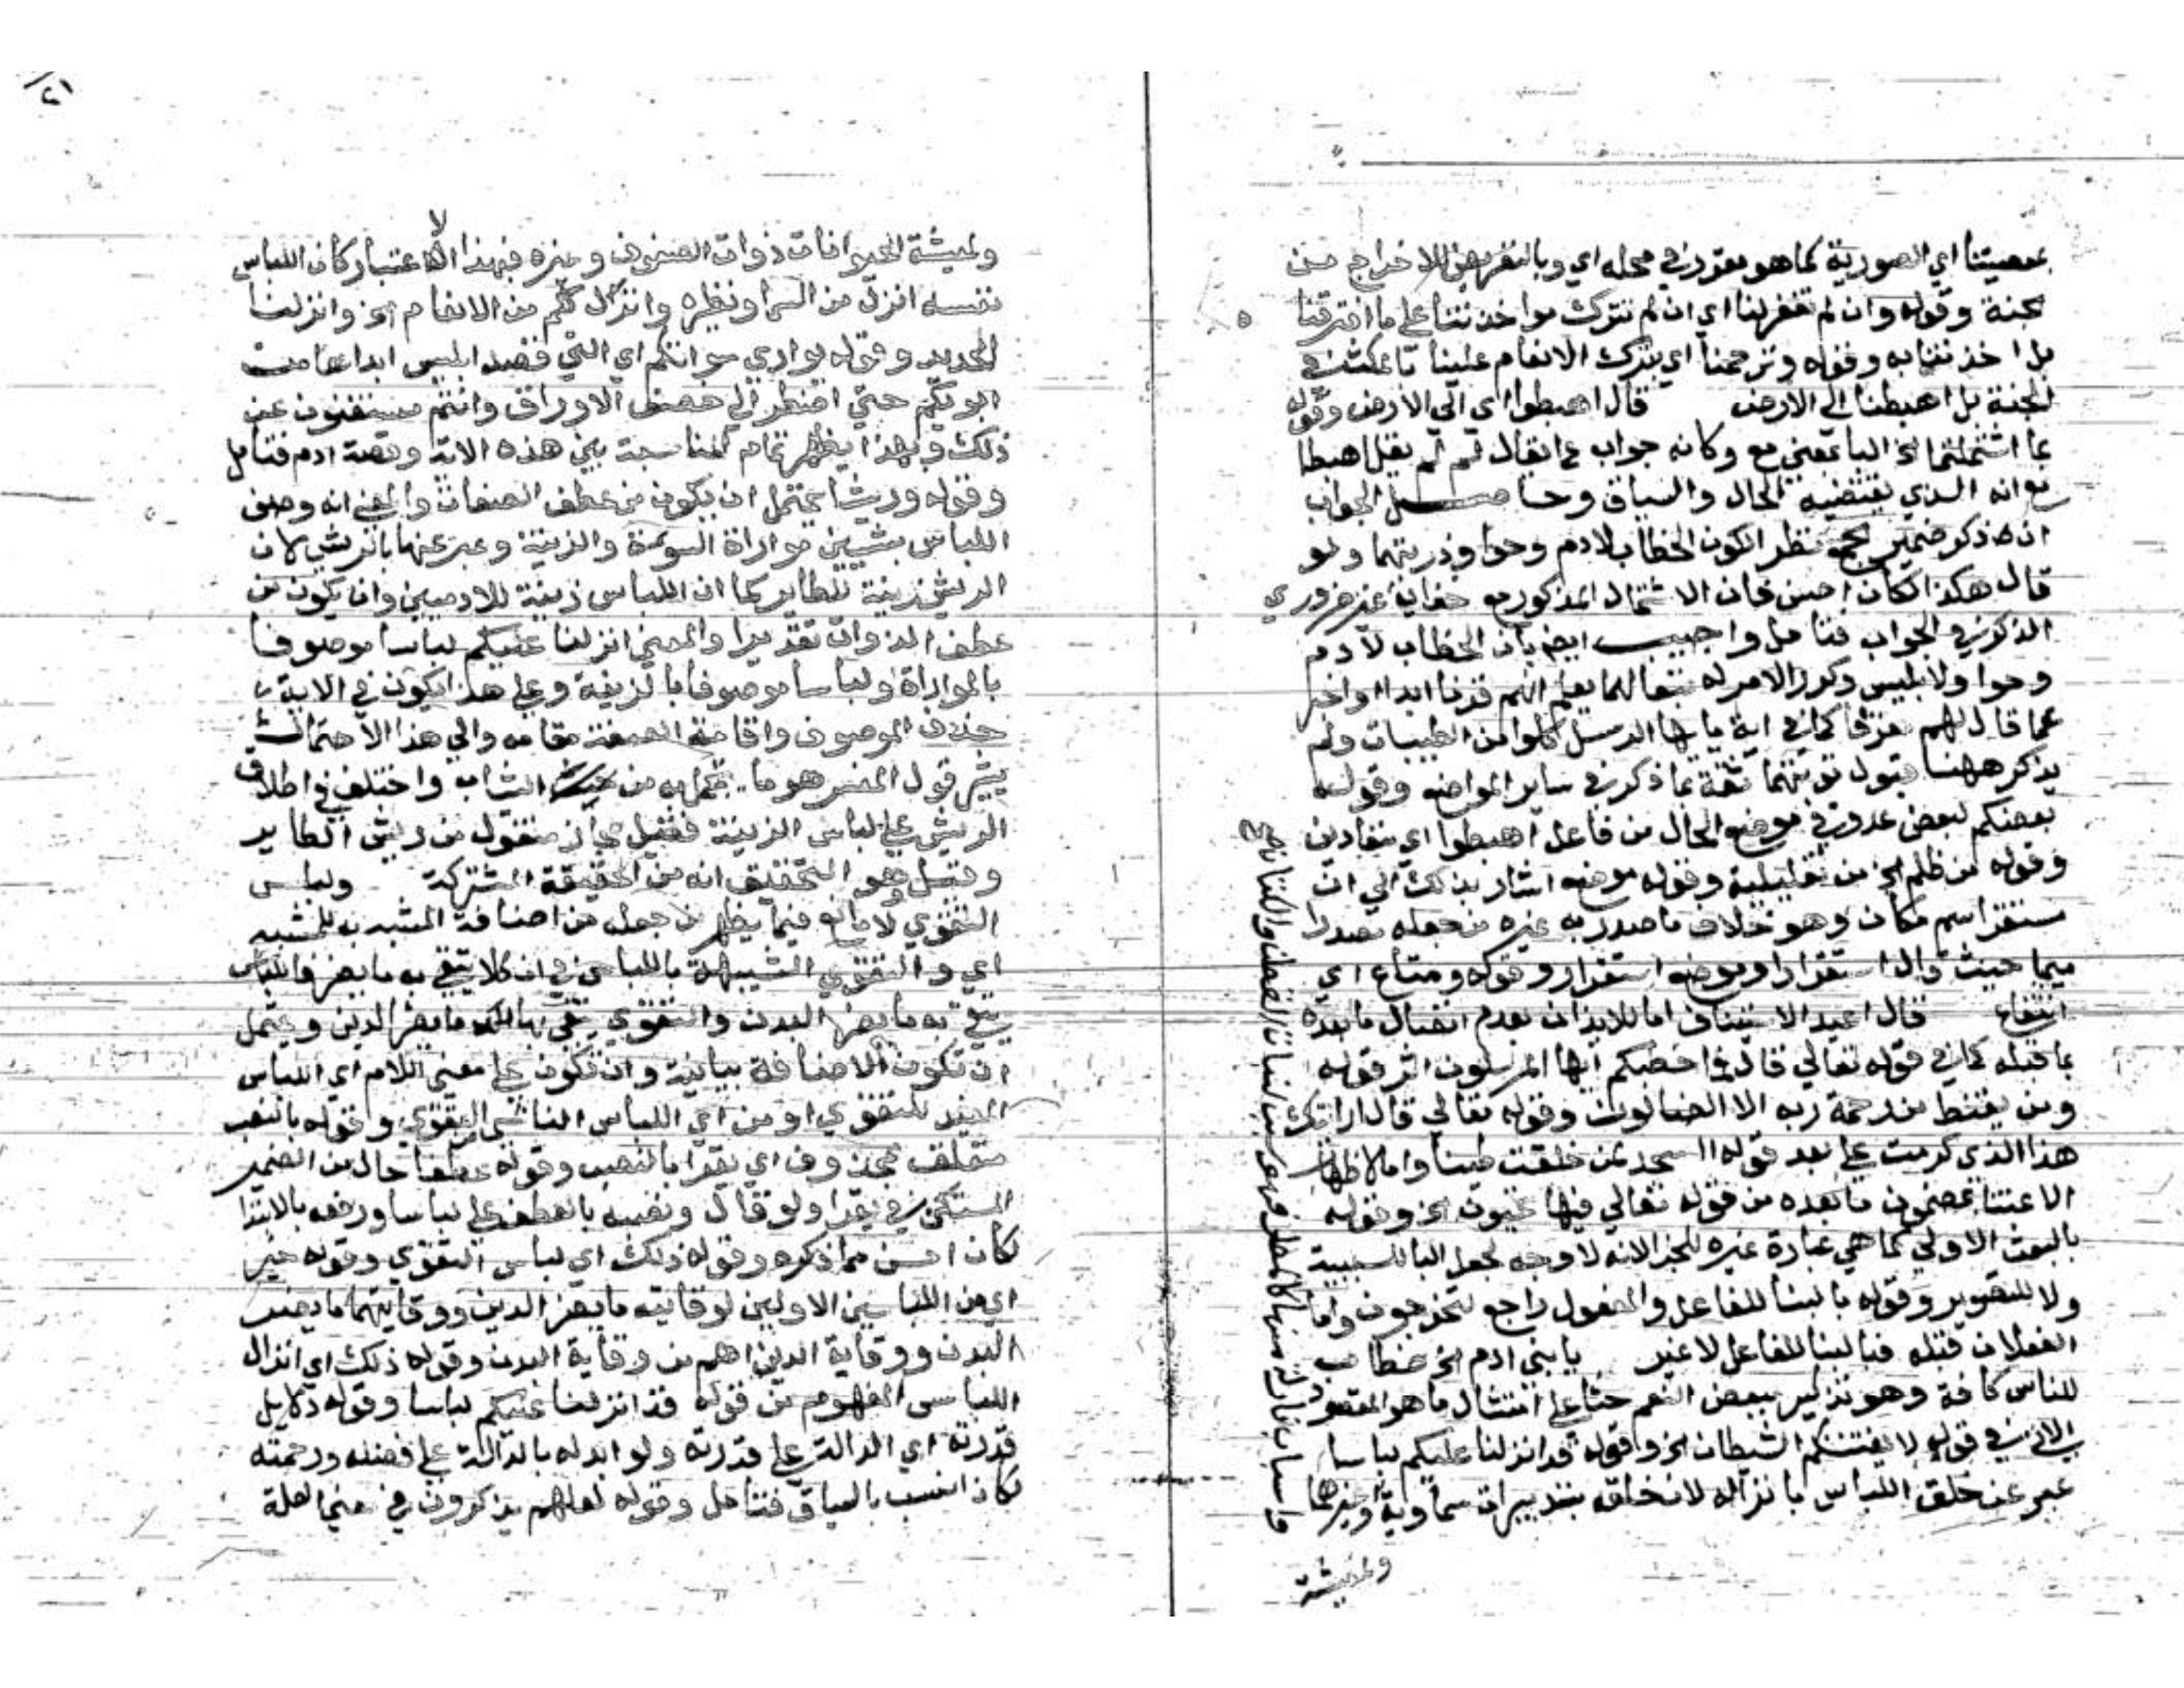 بمعصيتنا اي الصورية كما هو مقرر في محله اي وبالتعريض للاخراج من
الجنة وقوله وان لم تغفر لنا اي ان لم تترك مواخذتنا على ما اقترفنا
بل اخذتنا به وقوله وترحمنا اي بترك الانعام علينا
الجنة بل اهبطتنا الى الارض قال اهبطوا اي الى الارض وقوله
بما اشتملتما الخ البا بمعنى مع وكانه جواب عما يقال لم لم يقل اهبطا
مع انه الذي يقتضيه الحال والسياق وحاصل الجواب
انه ذكر ضمير الجمع نظرا لكون الخطاب لادم وحوا وذريتهما ولو
قال هكذا لكان احسن فان الاشتمال المذكور مع خفايه غير ضروري
الذكر في الجواب فتامل واجيب ايض بان الخطاب لادم
وحوا ولابليس وكرر الامر له تبعا لهما ليعلم انهم قرنا ابدا او اخبر
عما قال لهم مفرقا كما في اية يا ايها الرسل كلوا من الطيبات ولم
يذكر ههنا قبول توبتهما ثقة بما ذكر في ساير المواضع وقوله
بعضكم لبعض عدو في موضع الحال من فاعل اهبطوا اي متعادين
وقوله من ظلم الخ من تعليلية وقوله موضع اشار بذلك الى ان
مستقر اسم مكان وهو خلاف ما صدر به غيره من جعله مصدرا
ميميا حيث قال استقرار او موضع استقرار وقوله ومتاع اي
انتفاع قال اعيد الاستيناف اما للايذان بعدم اتصال ما بعده
بما قبله كما في قوله تعالى قال فما خطبكم ايها المرسلون اثر قوله
ومن يقنط من رحمة ربه الا الضالون وقوله تعالى قال ارايتك
هذا الذي كرمت علي بعد قوله ااسجد لمن خلقت طينا واما لاظهار
الاعتنا بمضمون ما بعده من قوله تعالى فيها تحيون الخ وقوله
بالبعث الاولى كما هي عبارة غيره للبعث لانه لا وجه لجعل البا للسببية
ولا للتصوير وقوله بالبنا للفاعل والمفعول راجع لتخرجون واما
الفعلان قبله فبالبنا للفاعل لا غير يا بني ادم الخ خطاب
للناس كافة وهو تذكير ببعض النعم حثا على امتثال ما هو المقصود
الاتي في قوله لا يفتننكم الشيطان الخ وقوله قد انزلنا عليكم لباسا
عبر عن خلق اللباس بانزاله لانه خلق بتدبيرات سماوية
ولمعيشة
ولمعيشة الحيوانات ذوات الصوف وغيره فبهذا الاعتبار كان اللباس
نفسه انزل من السما ونظيره وانزل لكم من الانعام الخ وانزلنا
الحديد وقوله يواري سواتكم اي التي قصد ابليس ابداها من
ابويكم حتى اضطر الى خصف الاوراق وانتم مستغنون عن
ذلك وبهذا يظهر تمام المناسبة بين هذه الاية وقصة ادم فتامل
وقوله وريشا يحتمل ان يكون من عطف الصفات والمعنى انه وصف
اللباس بشيين مواراة السوءة والزينة وعبر عنها بالريش لان
الريش زينة للطاير كما ان اللباس زينة للادميين وان يكون من
عطف الذوات تقديرا والمعنى انزلنا عليكم لباسا موصوفا
بالمواراة ولباسا موصوفا بالزينة وعلى هذا يكون في الاية
حذف الموصوف واقامة الصفة مقامه والى هذا الاحتمال
يشير قول المفسر هو ما يتجمل به من الثياب واختلف في اطلاق
الريش على لباس الزينة فقيل مجاز منقول من ريش الطاير
وقيل وهو التحقيق انه من الحقيقة المشتركة ولباس
التقوى لا مانع فيما يظهر من جعله من اضافة المشبه به للمشبه
اي والتقوى الشبيهة باللباس في ان كلا يتقى به ما يضر فاللباس
يتقى به ما يضر البدن والتقوى يتقى بها ما يضر الدين ويحتمل
ان تكون الاضافة بيانية وان تكون على معنى اللام اي اللباس
المفيد للتقوى او من اي اللباس الناشي من التقوى وقوله بالنصب
متعلق بمحذوف اي يقرا بالنصب وقوله عطفا حال من الضمير
المستكن في يقرا ولو قال ونصبه بالعطف على لباسا ورفعه بالابتدا
لكان احسن مما ذكره وقوله ذلك اي لباس التقوى وقوله خير
اي من اللباسين الاولين لوقايته ما يضر الدين ووقايتهما ما يضر
البدن ووقاية الدين اهم من وقاية البدن وقوله ذلك اي انزال
اللباس المفهوم من قوله قد انزلنا عليكم لباسا وقوله دلايل
قدرته اي الدالة على قدرته ولو ابدله بالدالة على فضله ورحمته
لكان انسب بالسياق فتامل وقوله لعلهم يذكرون في معنى العلة